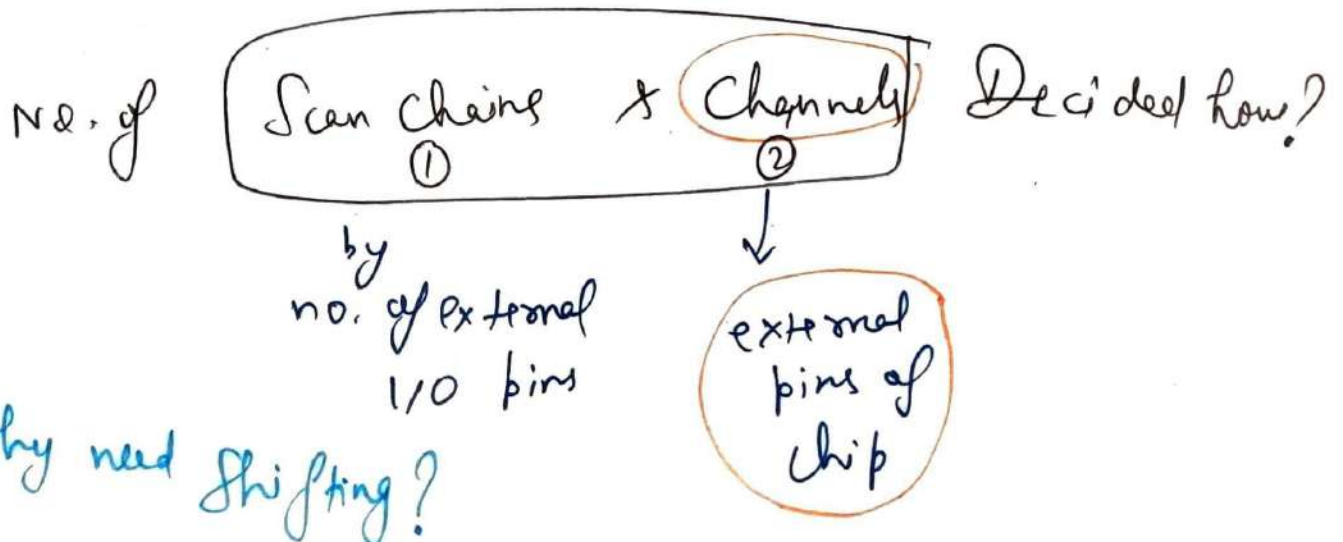 No. of Scan Chains & Channels Decided how?
① ②
by
no. of external
I/O pins
external
pins of
chip
hy need Shifting?